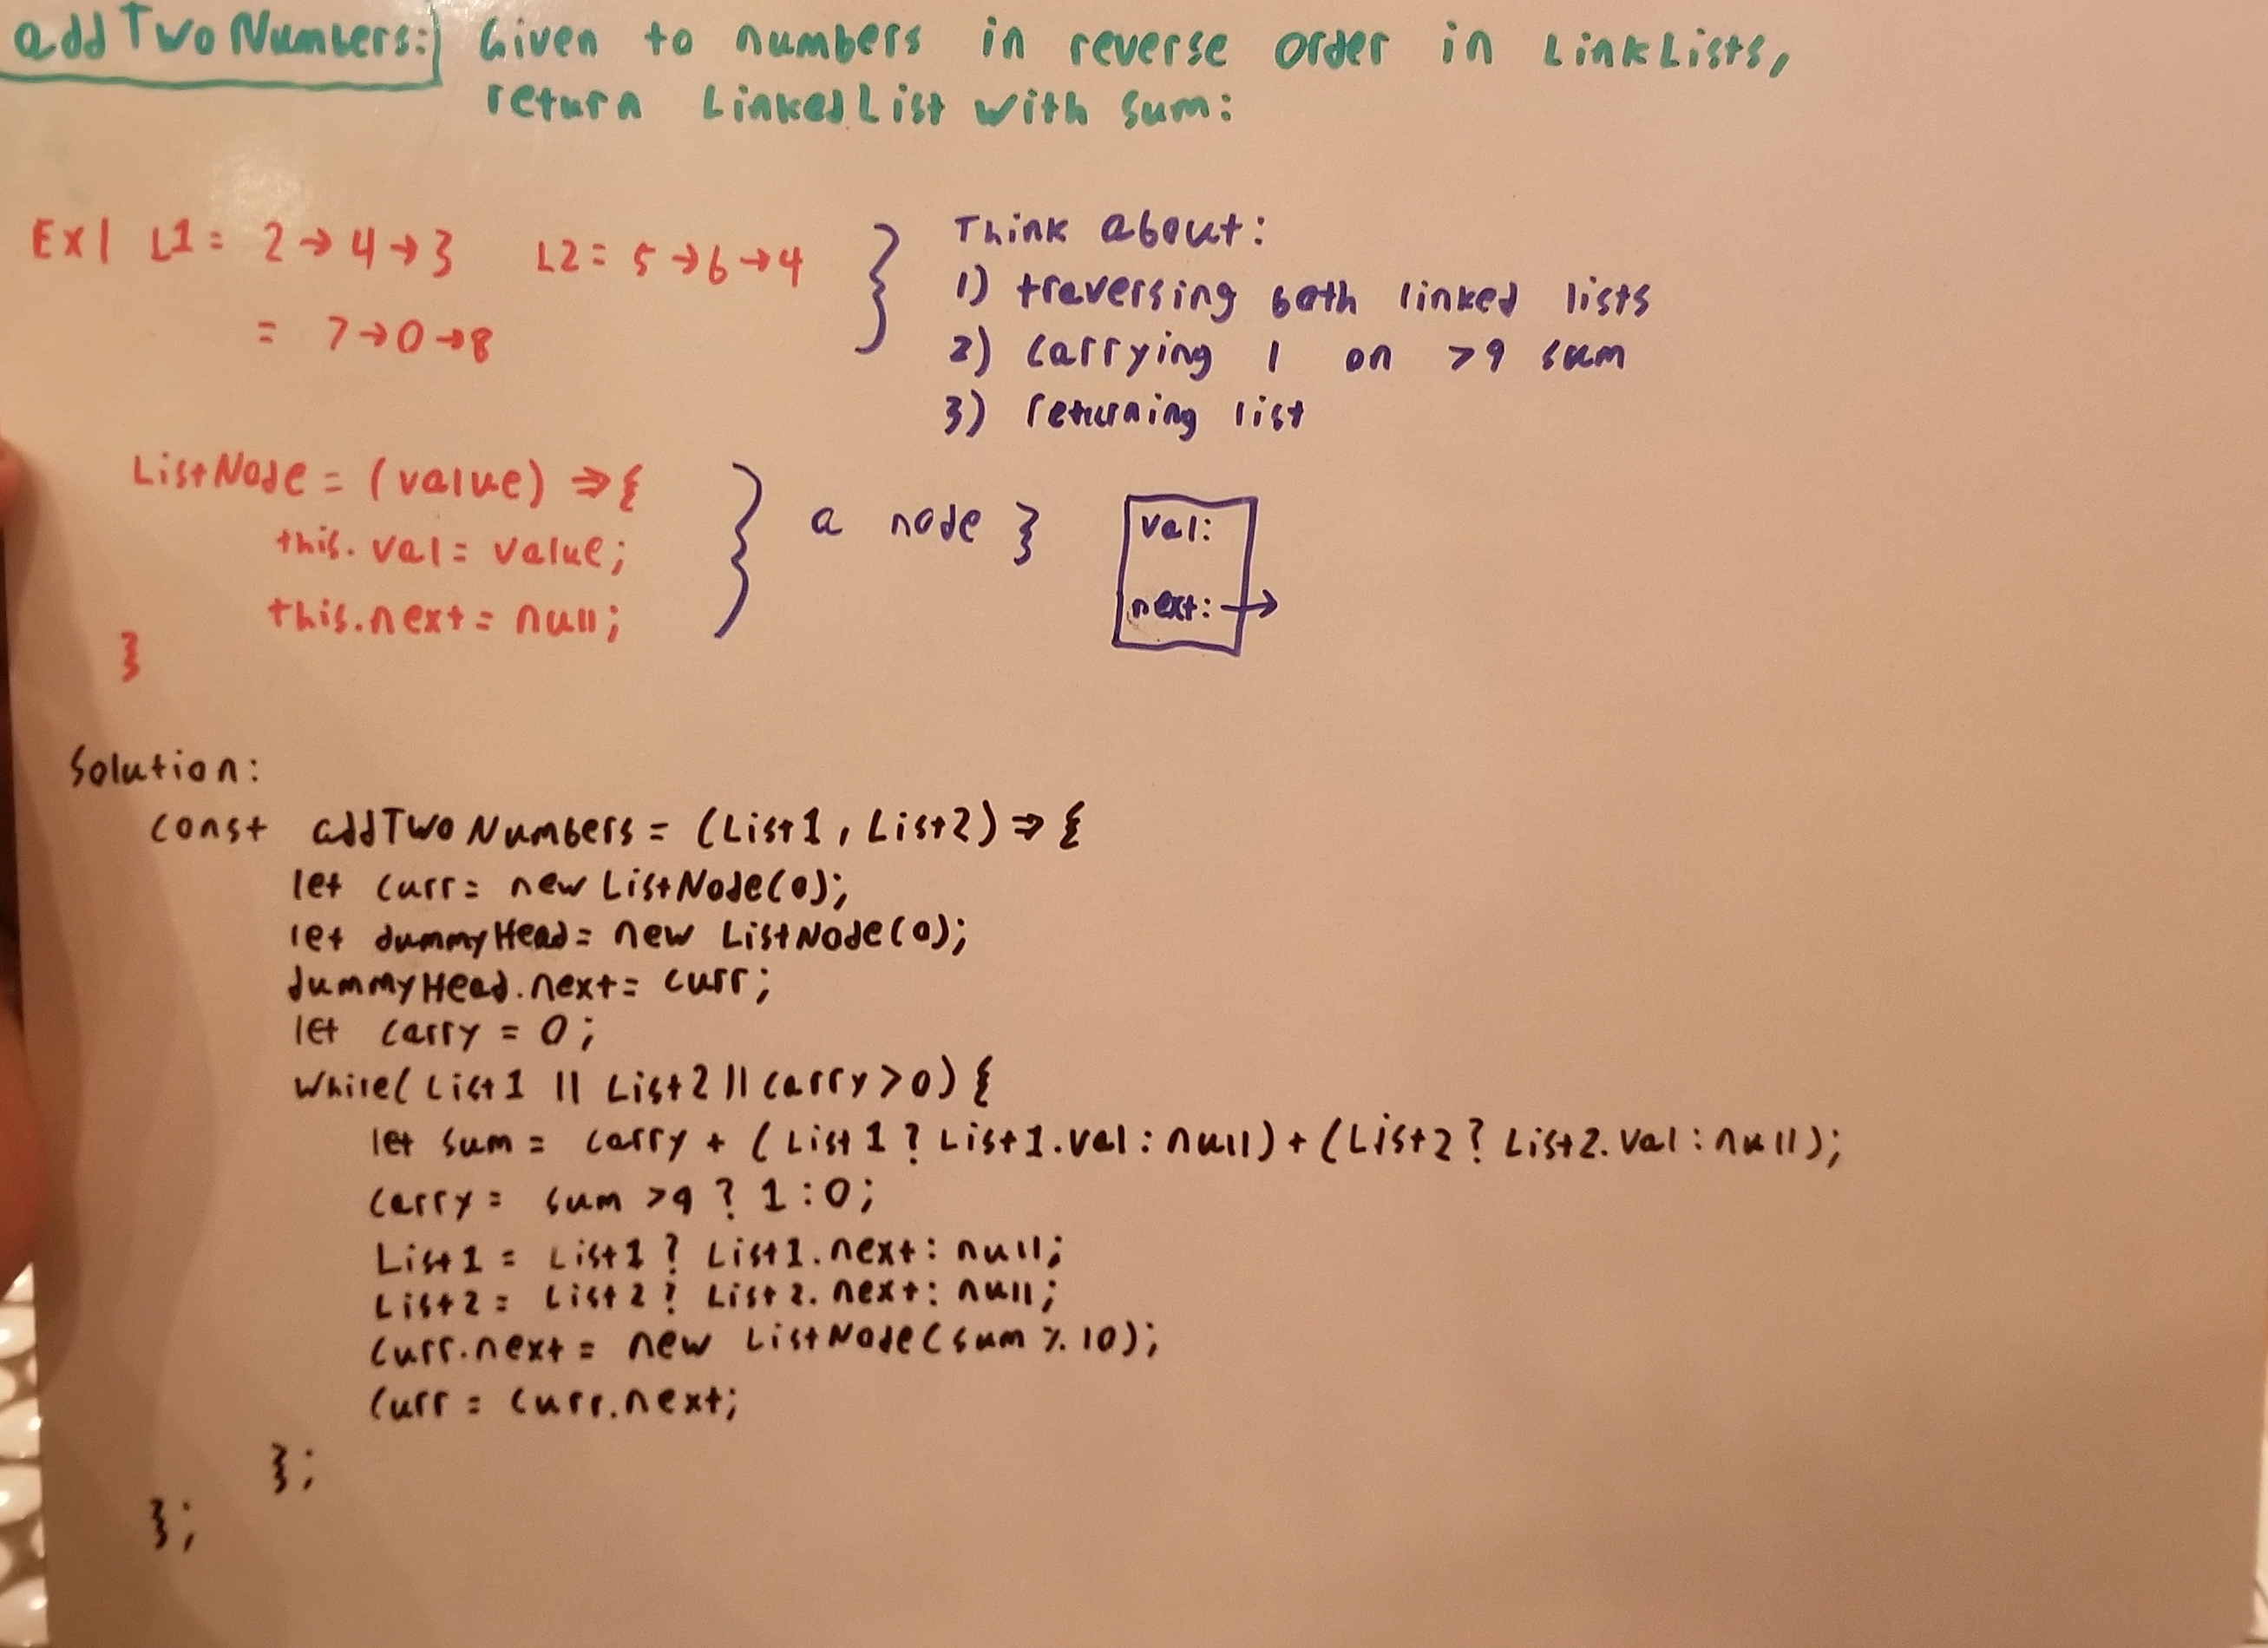 addTwoNumbers: Given to numbers in reverse order in LinkLists,
return LinkedList with sum:
Ex1 L1 = 2→4→3 L2 = 5→6→4
= 7→0→8
Think about:
1) traversing both linked lists
2) carrying 1 on >9 sum
3) returning list
ListNode = (value) => {
this.val = value;
this.next = null;
}
} a node }
val:
next: →
Solution:
const addTwoNumbers = (List1, List2) => {
let curr = new ListNode(0);
let dummyHead = new ListNode(0);
dummyHead.next = curr;
let carry = 0;
while(List1 || List2 || carry > 0) {
let sum = carry + (List1 ? List1.val : null) + (List2 ? List2.val : null);
carry = sum >9 ? 1 : 0;
List1 = List1 ? List1.next : null;
List2 = List2 ? List2.next : null;
curr.next = new ListNode(sum % 10);
curr = curr.next;
};
};